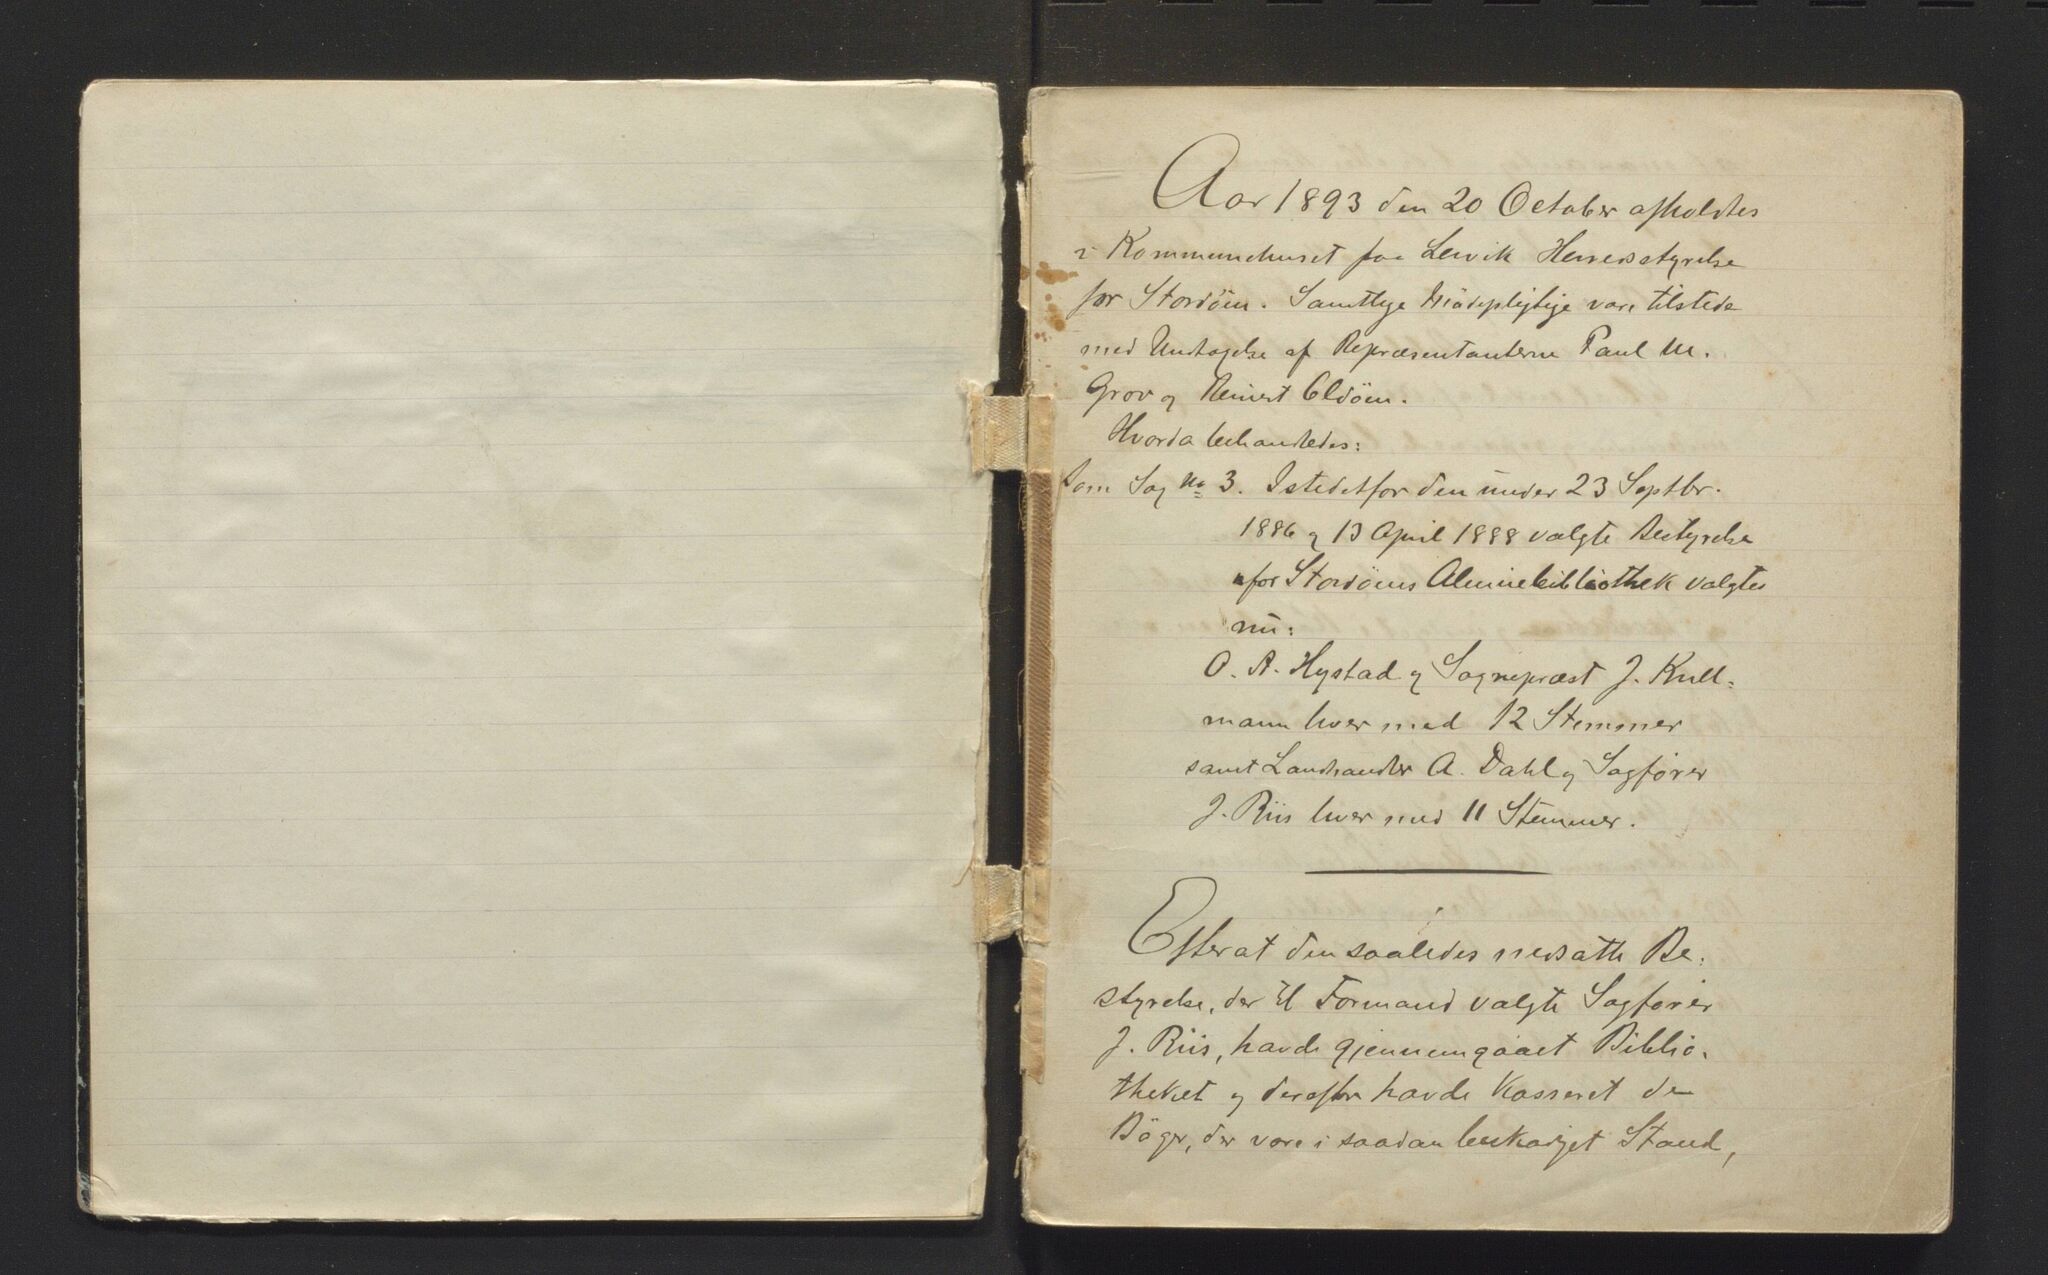 Aar 1893 den 20 October afholdtes
i Kommunehuset paa Lervik Herredsstyrelse
for Stordöen. Samtlige Mödepligtige vare tilstede
med Undtagelse af Repræsentanterne Paul M.
Grov og Reinert Eldöen.
Hvorda behandledes:
Som Sag No 3. Istedetfor den under 23 Septbr.
1886 og 13 April 1888 valgte Bestyrelse
for Stordöens Almuebibliothek valgtes
nu:
O. A. Hystad og Sognepræst J. Kull-
mann hver med 12 Stemmer
samt Landhandler A. Dahl og Sagförer
J. Riis hver med 11 Stemmer.
Efterat den saaledes nedsatte Be-
styrelse, der til Formand valgte Sagförer
J. Riis, havde gjennemgaaet Biblio-
theket og derefter havde kasseret de
Böger, der vare i saadan beskadiget Stand,